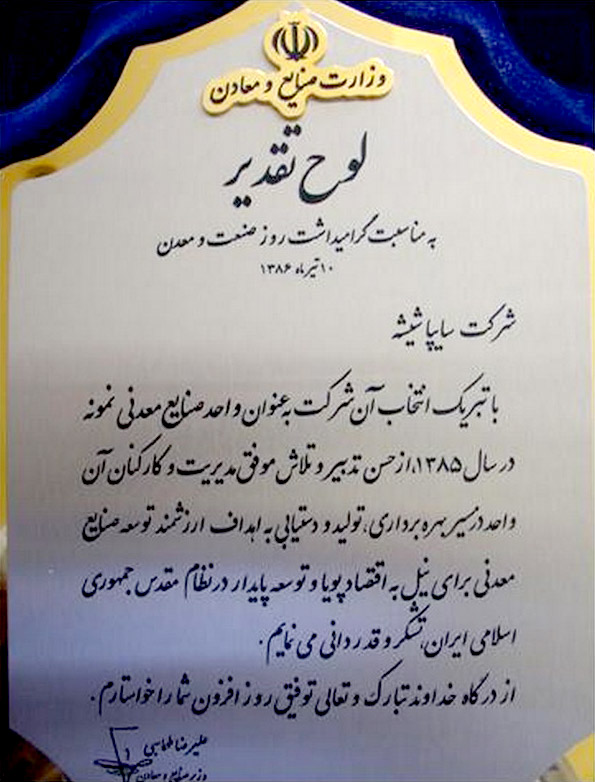 وزارت صنایع و معادن
لوح تقدیر
به مناسبت گرامیداشت روز صنعت و معدن
۱۰ تیر ماه ۱۳۸۶
شرکت سایپا شیشه
با تبریک انتخاب آن شرکت به عنوان واحد صنایع معدنی نمونه
در سال ۱۳۸۵، از حسن تدبیر و تلاش موفق مدیریت و کارکنان آن
واحد در مسیر بهره برداری، تولید و دستیابی به اهداف ارزشمند توسعه صنایع
معدنی برای نیل به اقتصاد پویا و توسعه پایدار در نظام مقدس جمهوری
اسلامی ایران، تشکر و قدردانی می نمایم.
از درگاه خداوند تبارک و تعالی توفیق روز افزون شما را خواستارم.
علیرضا طهماسبی
وزیر صنایع و معادن